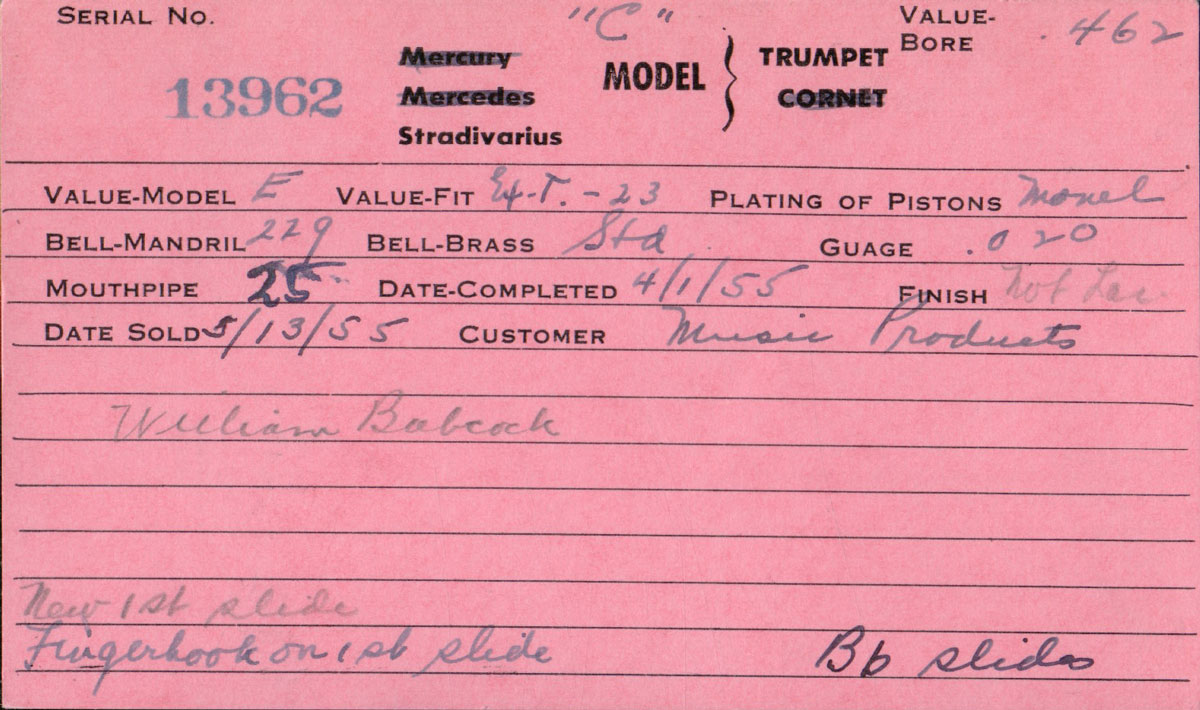 SERIAL NO. "C" VALUE-BORE .462
13962 Mercury MODEL } TRUMPET
Mercedes CORNET
Stradivarius
VALUE-MODEL E VALUE-FIT Ex-T.-23 PLATING OF PISTONS Monel
BELL-MANDRIL 229 BELL-BRASS Std. GUAGE .020
MOUTHPIPE 25 DATE-COMPLETED 4/1/55 FINISH Not Lac.
DATE SOLD 5/13/55 CUSTOMER Music Products
William Babcock
New 1st slide
Fingerhook on 1st slide Bb slides